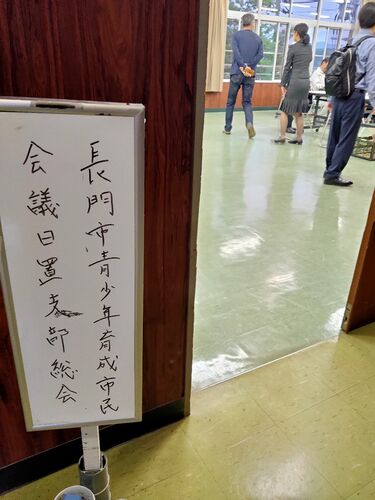 長門市青少年育成市民
会議日置支部総会